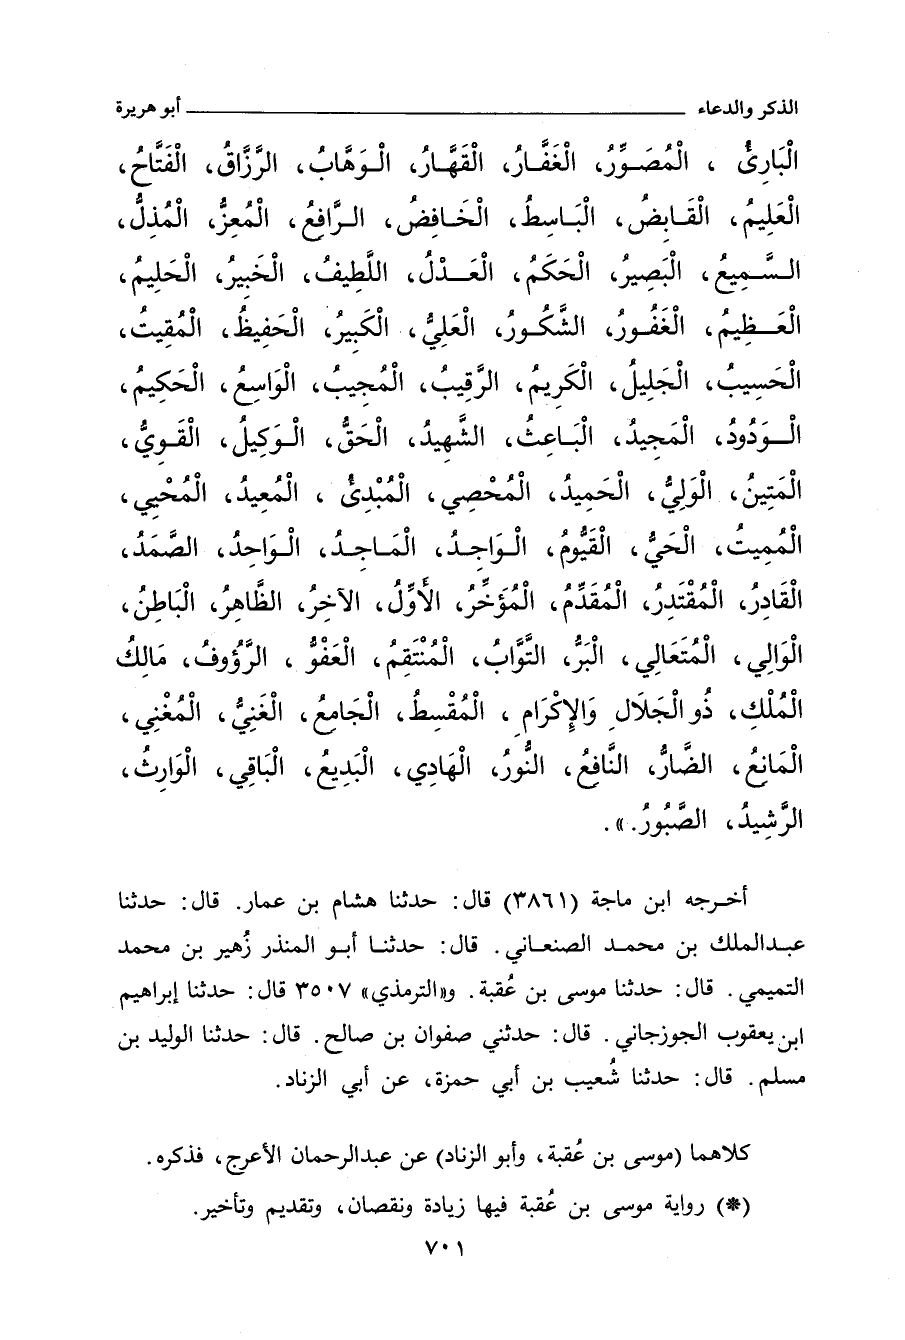 الذكر والدعاء ــــــــــــــــــــــــــــــــــــــــ أبو هريرة
الْبَارِئُ ، الْمُصَوِّرُ، الْغَفَّارُ، الْقَهَّارُ، الْوَهَّابُ، الرَّزَّاقُ، الْفَتَّاحُ،
الْعَلِيمُ، الْقَابِضُ، الْبَاسِطُ، الْخَافِضُ، الرَّافِعُ، الْمُعِزُّ، الْمُذِلُّ،
السَّمِيعُ، الْبَصِيرُ، الْحَكَمُ، الْعَدْلُ، اللَّطِيفُ، الْخَبِيرُ، الْحَلِيمُ،
الْعَظِيمُ، الْغَفُورُ، الشَّكُورُ، الْعَلِيُّ، الْكَبِيرُ، الْحَفِيظُ، الْمُقِيتُ،
الْحَسِيبُ، الْجَلِيلُ، الْكَرِيمُ، الرَّقِيبُ، الْمُجِيبُ، الْوَاسِعُ، الْحَكِيمُ،
الْوَدُودُ، الْمَجِيدُ، الْبَاعِثُ، الشَّهِيدُ، الْحَقُّ، الْوَكِيلُ، الْقَوِيُّ،
الْمَتِينُ، الْوَلِيُّ، الْحَمِيدُ، الْمُحْصِي، الْمُبْدِئُ ، الْمُعِيدُ، الْمُحْيِي،
الْمُمِيتُ، الْحَيُّ، الْقَيُّومُ، الْوَاجِدُ، الْمَاجِدُ، الْوَاحِدُ، الصَّمَدُ،
الْقَادِرُ، الْمُقْتَدِرُ، الْمُقَدِّمُ، الْمُؤَخِّرُ، الأَوَّلُ، الآخِرُ، الظَّاهِرُ، الْبَاطِنُ،
الْوَالِي، الْمُتَعَالِي، الْبَرُّ، التَّوَّابُ، الْمُنْتَقِمُ، الْعَفُوُّ ، الرَّؤُوفُ، مَالِكُ
الْمُلْكِ، ذُو الْجَلَالِ وَالإِكْرَامِ ، الْمُقْسِطُ، الْجَامِعُ، الْغَنِيُّ، الْمُغْنِي،
الْمَانِعُ، الضَّارُّ، النَّافِعُ، النُّورُ، الْهَادِي، الْبَدِيعُ، الْبَاقِي، الْوَارِثُ،
الرَّشِيدُ، الصَّبُورُ.».
أخرجه ابن ماجة (٣٨٦١) قال: حدثنا هشام بن عمار. قال: حدثنا
عبدالملك بن محمد الصنعاني. قال: حدثنا أبو المنذر زُهير بن محمد
التميمي. قال: حدثنا موسى بن عُقبة. و«الترمذي» ٣٥٠٧ قال: حدثنا إبراهيم
ابن يعقوب الجوزجاني. قال: حدثني صفوان بن صالح. قال: حدثنا الوليد بن
مسلم. قال: حدثنا شُعيب بن أبي حمزة، عن أبي الزناد.
كلاهما (موسى بن عُقبة، وأبو الزناد) عن عبدالرحمان الأعرج، فذكره.
(*) رواية موسى بن عُقبة فيها زيادة ونقصان، وتقديم وتأخير.
٧٠١